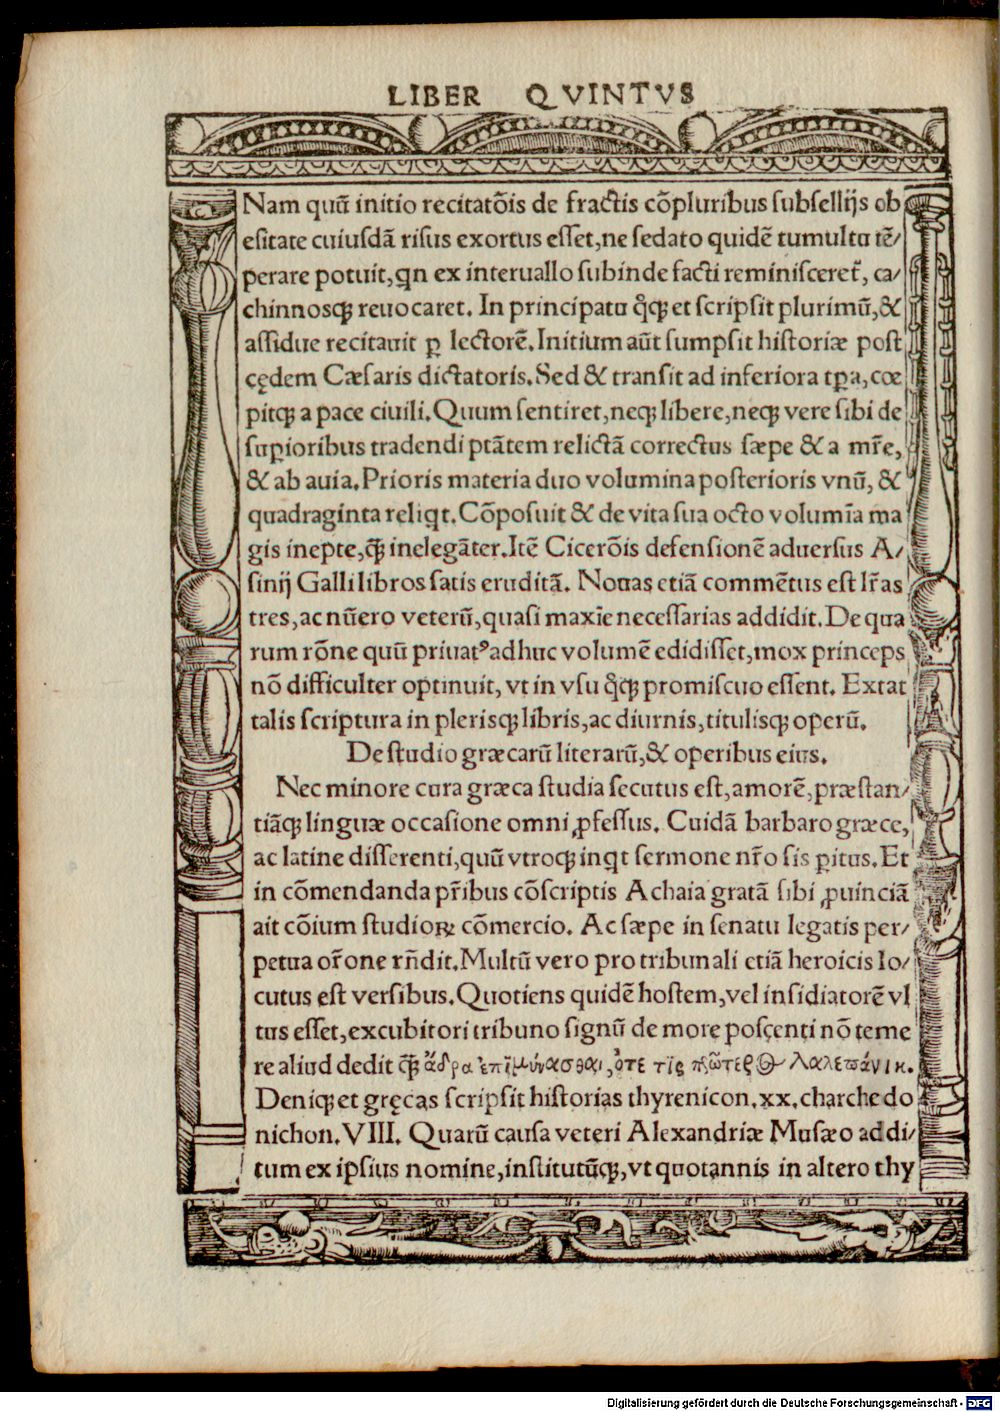 LIBER QVINTVS
Nam quū initio recitatōis de fractis cōpluribus subsellijs ob
esitate cuiusdā risus exortus esset,ne sedato quidē tumultu tē/
perare potuit,qn ex interuallo subinde facti reminisceret᷑, ca/
chinnosqꝫ reuocaret. In principatu q̊qꝫ et scripsit plurimū,&
assidue recitauit ꝑ lectorē.Initium aūt sumpsit historiæ post
cędem Cæsaris dictatoris.Sed & transit ad inferiora tꝑa,cœ
pitqꝫ a pace ciuili.Quum sentiret,neqꝫ libere,neqꝫ vere sibi de
suꝑioribus tradendi ptātem relictā correctus sæpe & a mr̄e,
& ab auia.Prioris materia duo volumina posterioris vnū, &
quadraginta reliqt.Cōposuit & de vita sua octo volumīa ma
gis inepte,q̄ꝫ inelegāter.Itē Cicerōis defensionē aduersus A/
sinij Galli libros satis eruditā. Nouas etiā commētus est lr̄as
tres,ac nūero veterū,quasi maxīe necessarias addidit.De qua
rum rōne quū priuatꝰ adhuc volumē edidisset,mox princeps
nō difficulter optinuit, vt in vsu q̊qꝫ promiscuo essent. Extat
talis scriptura in plerisqꝫ libris,ac diurnis,titulisqꝫ operū.
De studio græcarū literarū,& operibus eius.
Nec minore cura græca studia secutus est,amorē,præstan/
tiāqꝫ linguæ occasione omni ꝓfessus. Cuidā barbaro græce,
ac latine disserenti,quū vtroqꝫ inqt sermone nr̄o sis ꝑitus. Et
in cōmendanda pr̄ibus cōscriptis Achaia gratā sibi ꝓuinciā
ait cōium studioꝝ cōmercio. Ac sæpe in senatu legatis per/
petua or̄one rn̄dit.Multū vero pro tribunali etiā heroicis lo/
cutus est versibus.Quotiens quidē hostem,vel insidiatorē vl
tus esset,excubitori tribuno signū de more posçenti nō teme
re aliud dedit q̄ꝫ ἄδρα ἐπημύνασθαι,ὅτε τὶς
Deniqꝫ et gręcas scripsit historias thyrenicon.xx.charchedo
nichon.VIII. Quarū causa veteri Alexandriæ Musæo addi/
tum ex ipsius nomine,institutūqꝫ,vt quotannis in altero thy
Digitalisierung gefördert durch die Deutsche Forschungsgemeinschaft - DFG